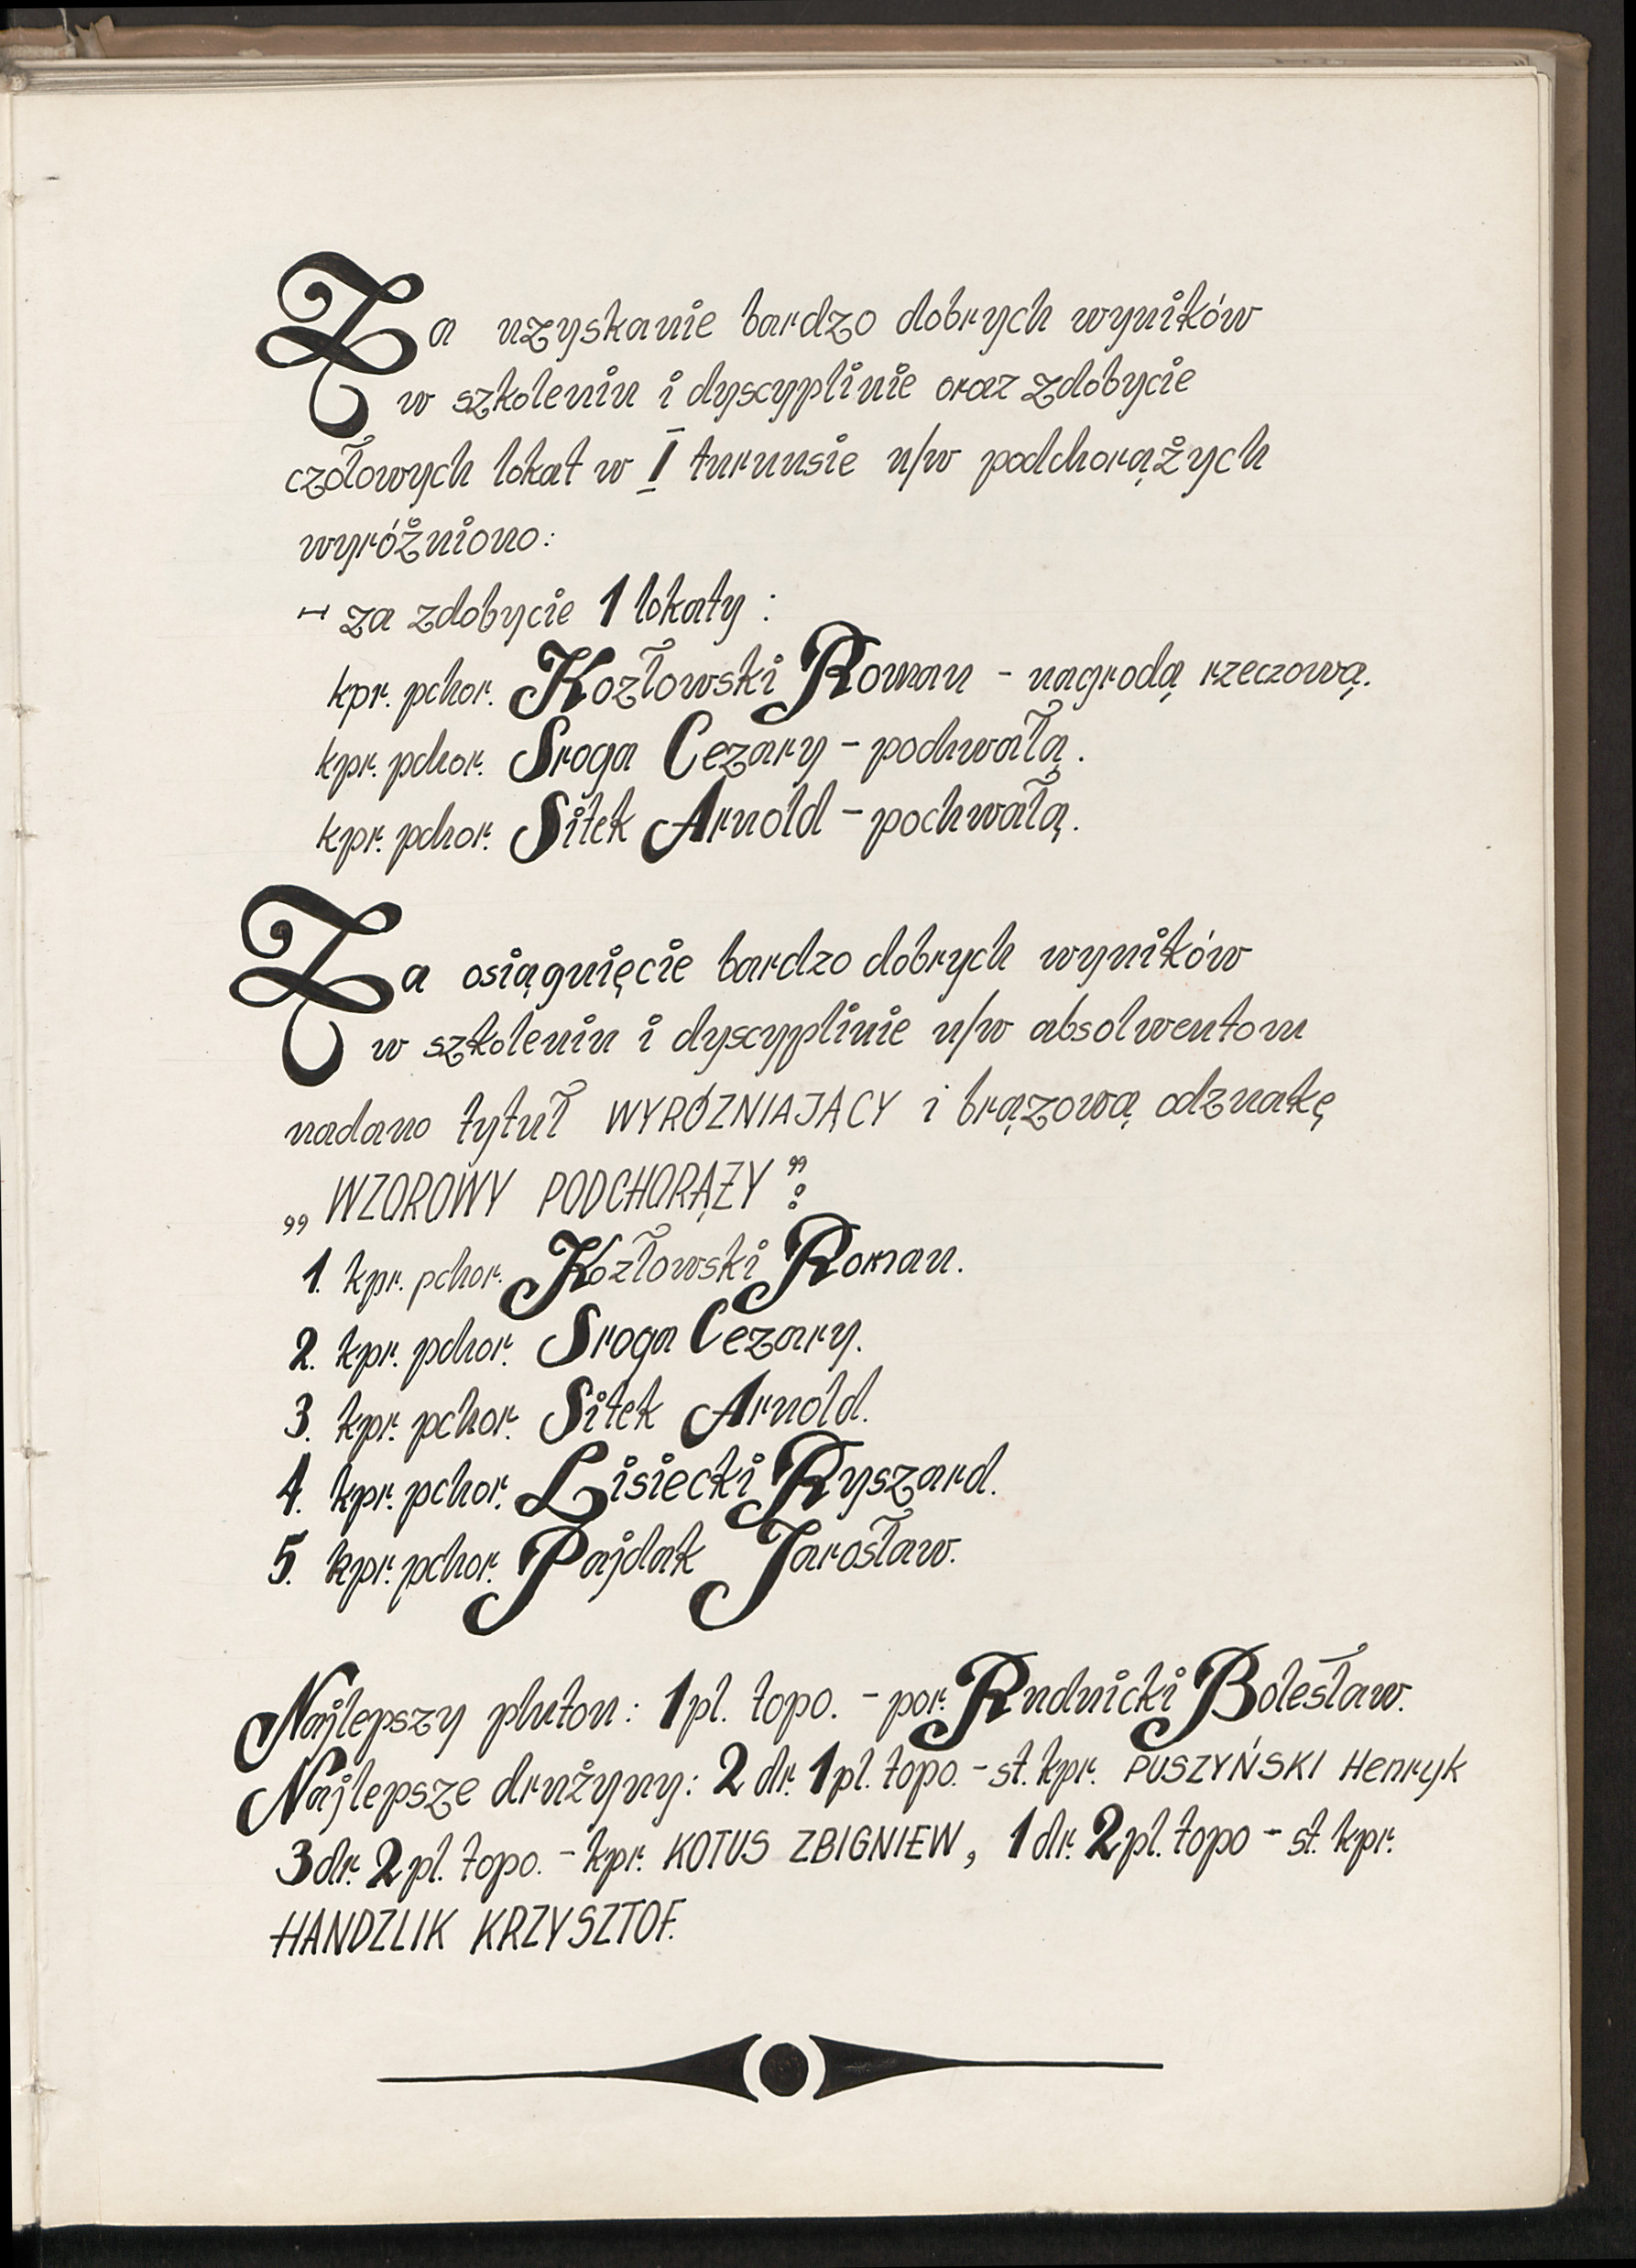 Za uzyskanie bardzo dobrych wyników
w szkoleniu i dyscyplinie oraz zdobycie
czołowych lokat w I turnusie n/w podchorążych
wyróżniono:
- za zdobycie 1 lokaty :
kpr. pchor. Kozłowski Roman - nagrodą rzeczową.
kpr. pchor. Sroga Cezary - pochwałą.
kpr. pchor. Sitek Arnold - pochwałą.
Za osiągnięcie bardzo dobrych wyników
w szkoleniu i dyscyplinie n/w absolwentom
nadano tytuł WYRÓŻNIAJĄCY i brązową odznakę
„WZOROWY PODCHORĄŻY”:
1. kpr. pchor. Kozłowski Roman.
2. kpr. pchor. Sroga Cezary.
3. kpr. pchor. Sitek Arnold.
4. kpr. pchor. Lisiecki Ryszard.
5. kpr. pchor. Pajdak Jarosław.
Najlepszy pluton: 1 pl. topo. - por. Rudnicki Bolesław.
Najlepsze drużyny: 2 dr. 1 pl. topo. - st. kpr. PUSZYŃSKI Henryk
3 dr. 2 pl. topo. - kpr. KOTUS ZBIGNIEW, 1 dr. 2 pl. topo - st. kpr.
HANDZLIK KRZYSZTOF.